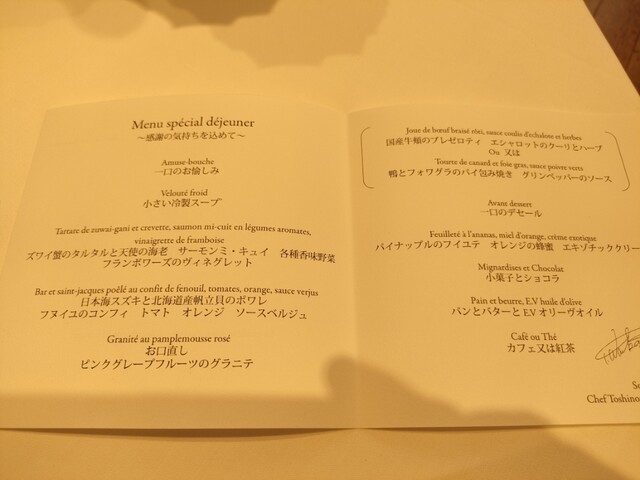 Menu spécial déjeuner
～感謝の気持ちを込めて～
Amuse-bouche
一口のお愉しみ
Velouté froid
小さい冷製スープ
Tartare de zuwai-gani et crevette, saumon mi-cuit en légumes aromates,
vinaigrette de framboise
ズワイ蟹のタルタルと天使の海老　サーモンミ・キュイ　各種香味野菜
フランボワーズのヴィネグレット
Bar et saint-jacques poêlé au confit de fenouil, tomates, orange, sauce verjus
日本海スズキと北海道産帆立貝のポワレ
フヌイユのコンフィ　トマト　オレンジ　ソースベルジュ
Granité au pamplemousse rosé
お口直し
ピンクグレープフルーツのグラニテ
Joue de bœuf braisé rôti, sauce coulis d'echalote et herbes
国産牛頬のブレゼロティ　エシャロットのクーリとハーブ
Ou 又は
Tourte de canard et foie gras, sauce poivre verts
鴨とフォワグラのパイ包み焼き　グリンペッパーのソース
Avant dessert
一口のデセール
Feuilleté à l'ananas, miel d'orange, crème exotique
パイナップルのフイユテ　オレンジの蜂蜜　エキゾチッククリー
Mignardises et Chocolat
小菓子とショコラ
Pain et beurre, E.V huile d'olive
パンとバターと EV オリーヴオイル
Café ou Thé
カフェ又は紅茶
Chef Toshino